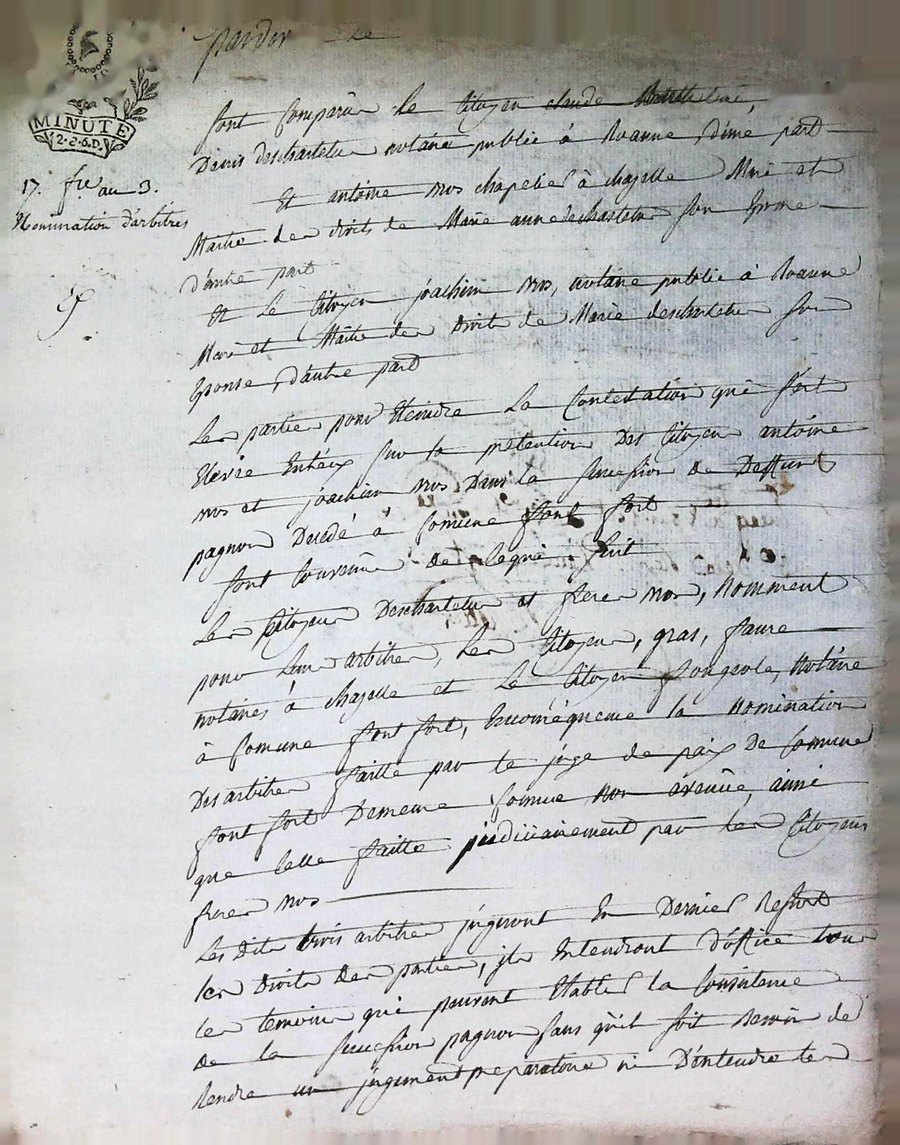 pardvt Le
MINUTE
2.S.6.D.
17. fre au 3.
Nomination d'arbitres
sont Comparû Le Citoyen claude
Denis deschartelu notaire public à Roanne, d'une part
Et antoine mos chapelier à chazelle Mari et
Maitre des droits de Marie anne deschartelu son Epouse
d'autre part
Et Le Citoyen joachim mos, notaire public à Roanne
Mari et Maitre des Droits de Marie deschartelu son
Eponse, d'autre part
Les partie pour Eteindre La Contestation qui sest
Elevée Entreux sur la pretention Des Citoyen antoine
mos et joachim mos Dans la succession de Deffunt
pagnon Decedé à Comune font fort
sont Convenu de ce qui suit
Les Citoyen Deschartelu et freres mos, nomment
pour leur arbitres, Les Citoyen, gras, faure
notaires à chazelle et Le Citoyen fongerole, Notaire
à Comune font fort, la nomination
Des arbitres faitte par le juge de paix de Comune
font fort Demeure Comme non avenüe, ainsi
que Celle faitte judiciairement par les Citoyens
freres mos
Les dits trois arbitres jugeront En Dernier Ressort
les Droits Des parties, ils Entendront d'office tous
les temoins qui pourront Etablir la Consistence
de la succession pagnon sans qu'il soit Besoin de
Rendre un jugement preparatoire ni D'entendre les